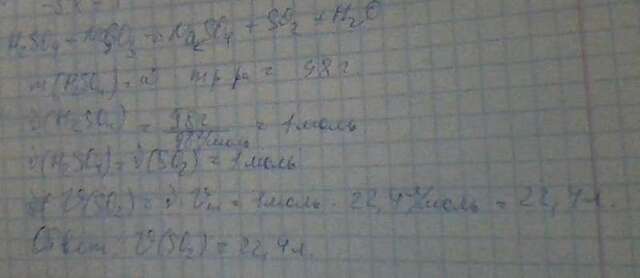 H₂SO₄ + Na₂SO₃ = Na₂SO₄ + SO₂ + H₂O
= 98 г
ν(H₂SO₄) = 98г / 98г/моль = 1 моль
ν(H₂SO₄) = ν(SO₂) = 1 моль
V(SO₂) = ν · Vm = 1 моль · 22,4 л/моль = 22,4 л.
Ответ: V(SO₂) = 22,4 л.